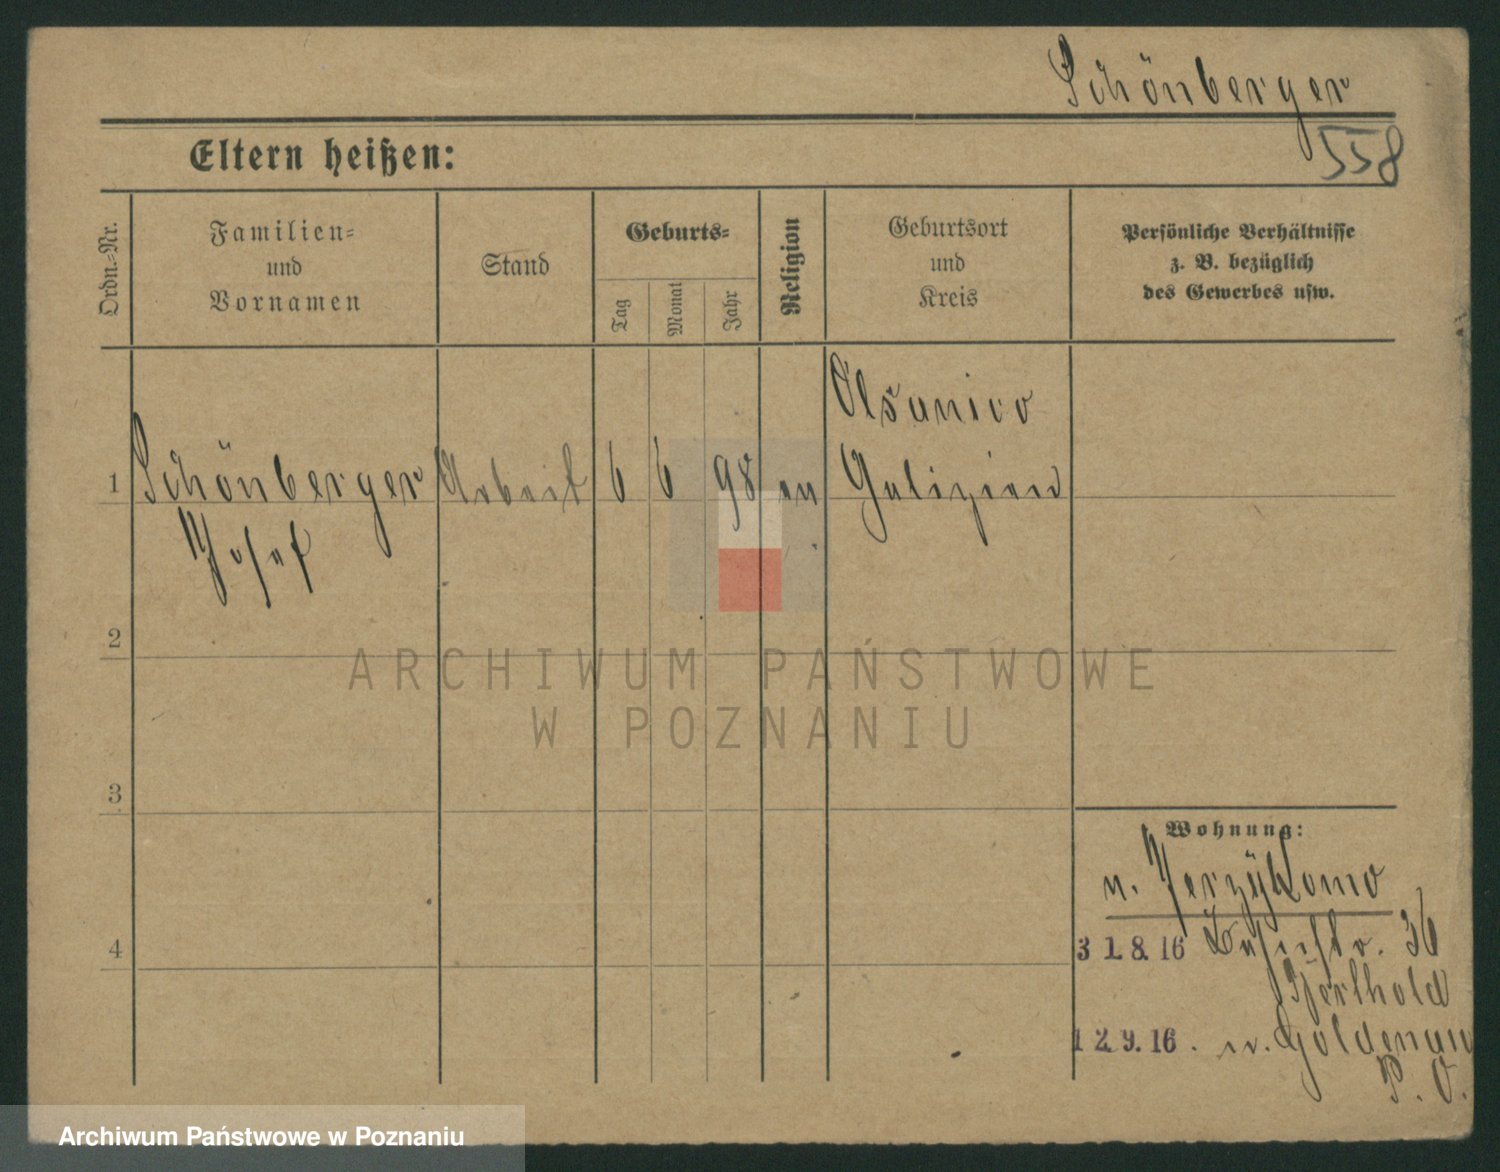 Schönberger
558
Eltern heißen:
Ordn.=Nr.
Familien=
und
Vornamen
Stand
Geburts=
Tag
Monat
Jahr
Religion
Geburtsort
und
Kreis
Persönliche Verhältnisse
z. B. bezüglich
des Gewerbes usw.
1
Schönberger
Josef
Arbeit
6
6
98
ev
Olsanico
Galizien
2
3
4
Wohnung:
n. Jerzÿkowo
31.8.16
36
Berthold
12.9.16.
n. Goldenau
P. O.
ARCHIWUM PAŃSTWOWE
W POZNANIU
Archiwum Państwowe w Poznaniu